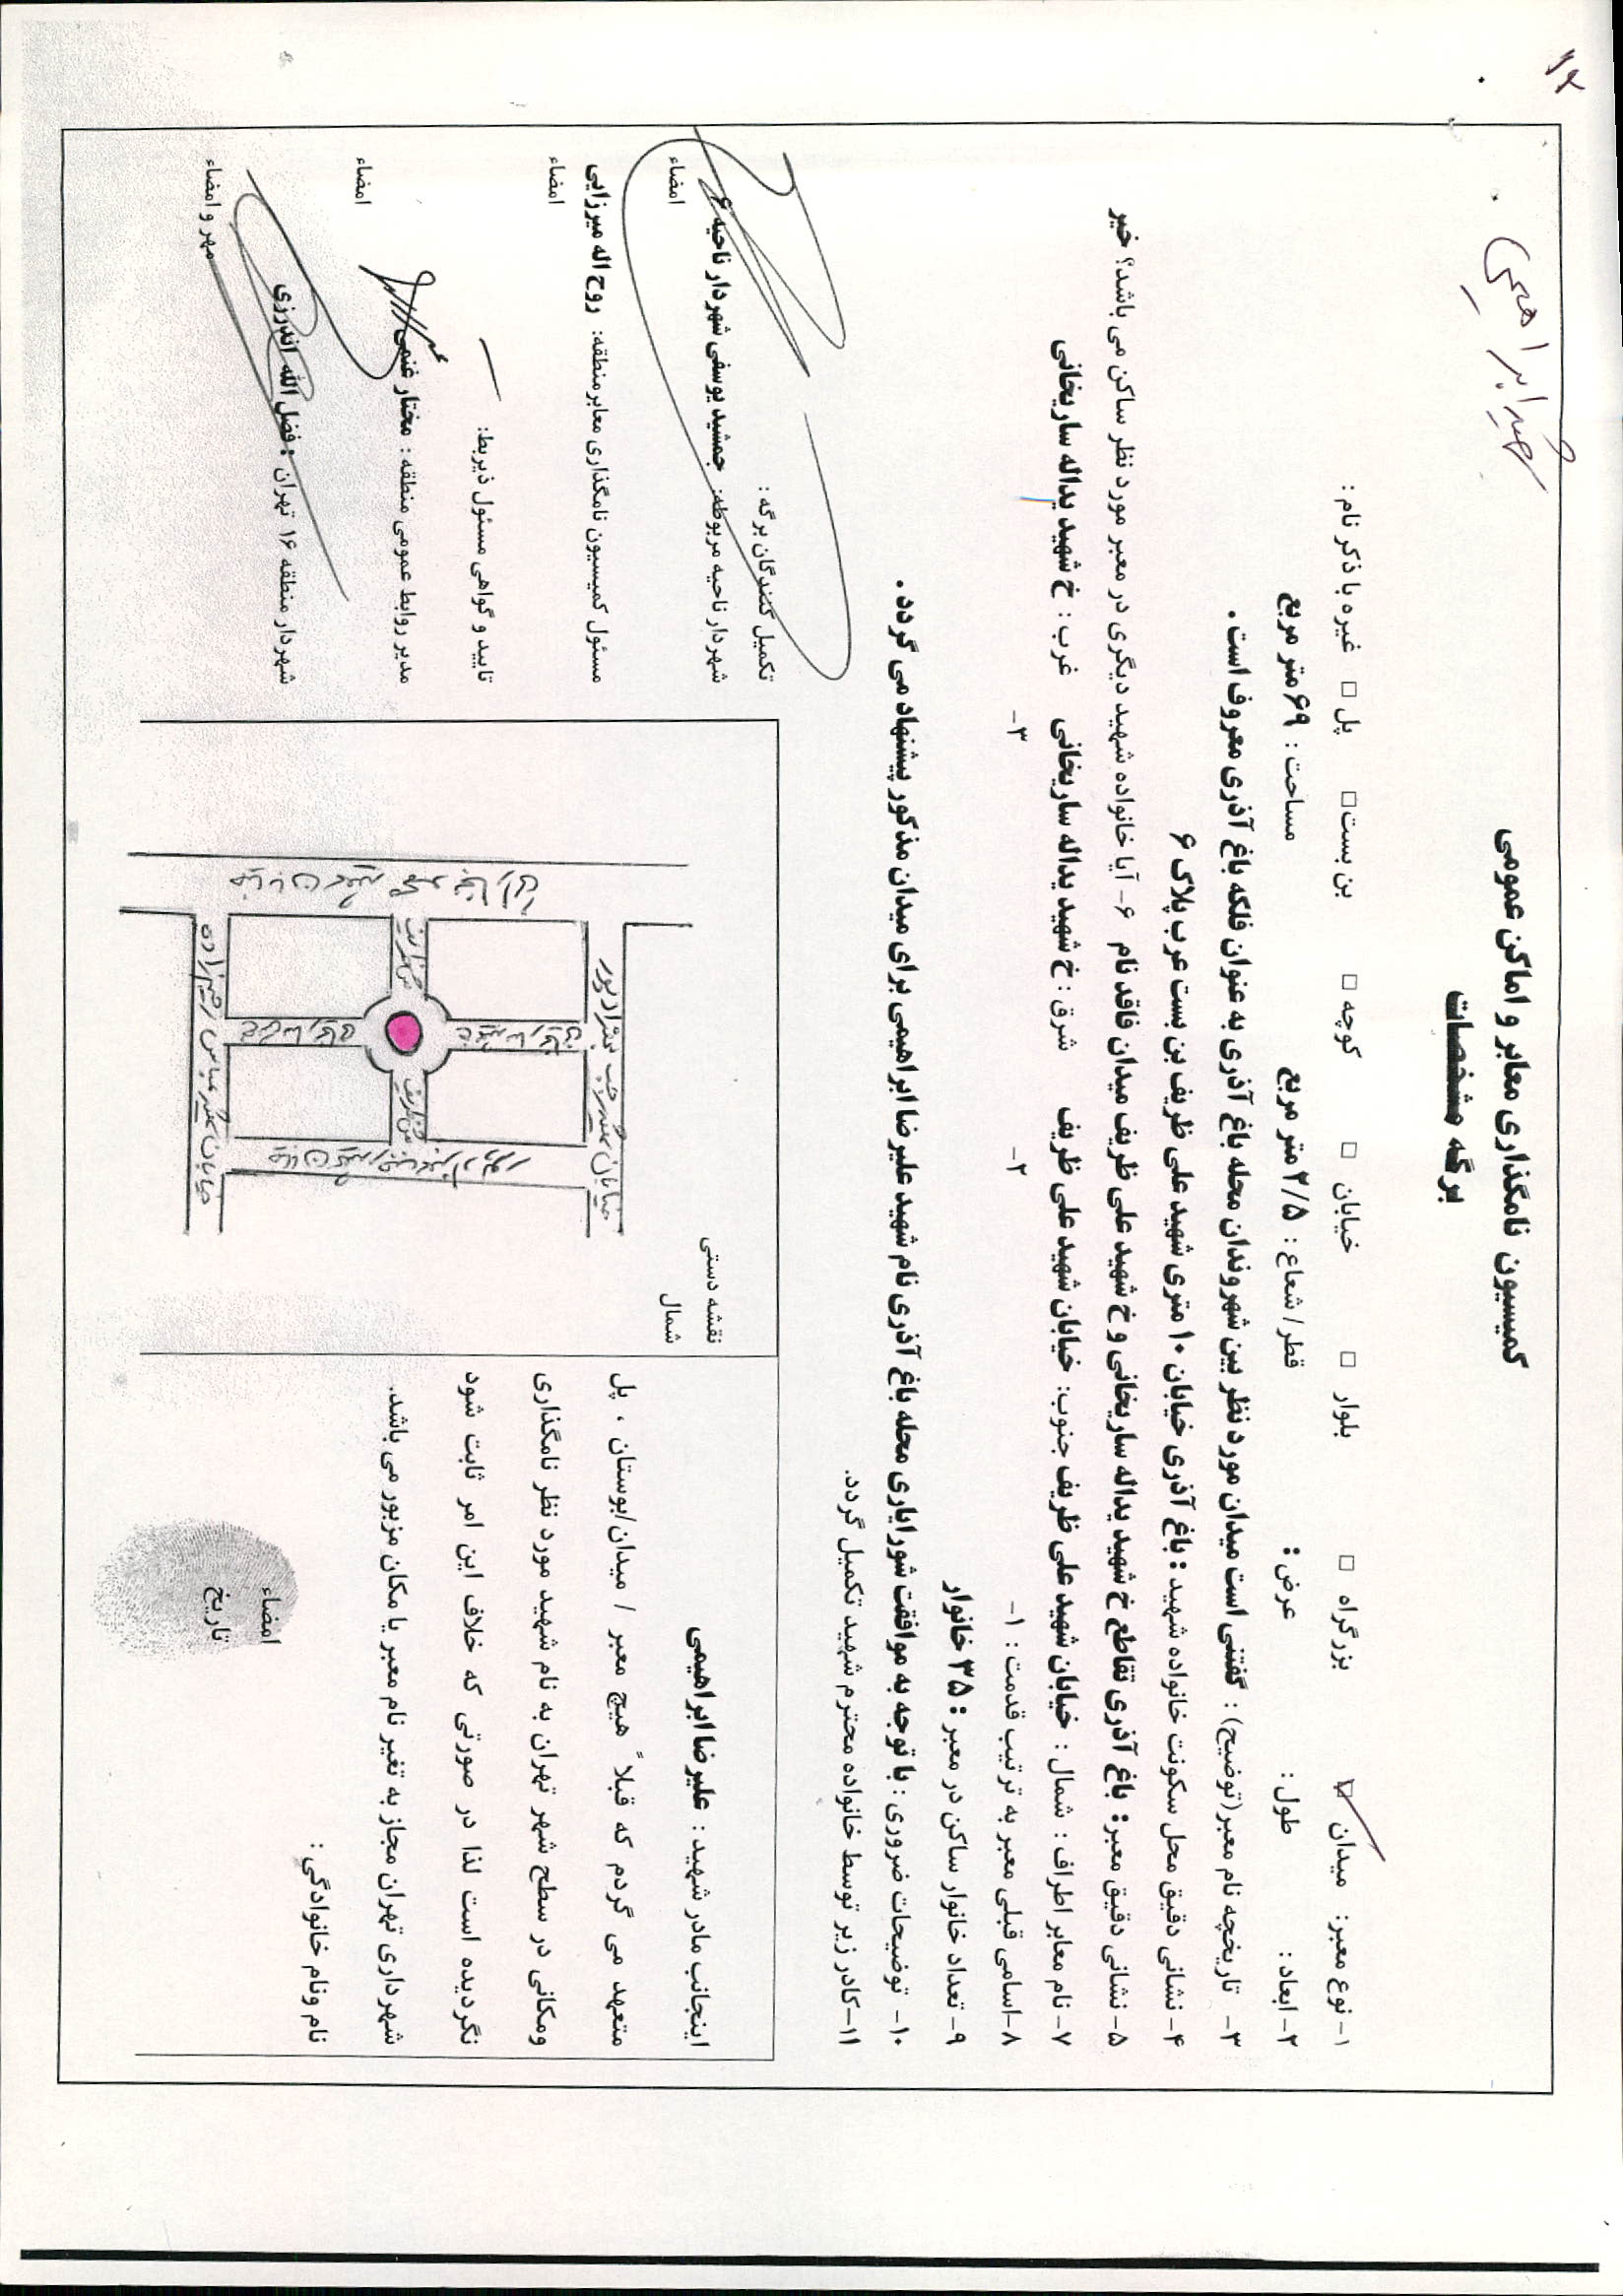 ۱۶
شهید ابراهیمی
کمیسیون نامگذاری معابر و اماکن عمومی
برگه مشخصات
۱- نوع معبر: میدان ☑ بزرگراه □ بلوار □ خیابان □ کوچه □ بن بست□ پل □ غیره با ذکر نام :
۲- ابعاد: طول : عرض : قطر/ شعاع : ۲/۵ متر مربع مساحت : ۶۹ متر مربع
۳- تاریخچه نام معبر(توضیح): گفتنی است میدان مورد نظر بین شهروندان محله باغ آذری به عنوان فلکه باغ آذری معروف است .
۴- نشانی دقیق محل سکونت خانواده شهید : باغ آذری خیابان ۱۰ متری شهید علی ظریف بن بست عرب پلاک ۶
۵- نشانی دقیق معبر: باغ آذری تقاطع خ شهید یداله ساریخانی و خ شهید علی ظریف میدان فاقد نام ۶- آیا خانواده شهید دیگری در معبر مورد نظر ساکن می باشد؟ خیر
۷- نام معابر اطراف : شمال : خیابان شهید علی ظریف جنوب: خیابان شهید علی ظریف شرق : خ شهید یداله ساریخانی غرب : خ شهید یداله ساریخانی
۸-اسامی قبلی معبر به ترتیب قدمت : ۱- ۲- ۳-
۹- تعداد خانوار ساکن در معبر : ۳۵ خانوار
۱۰- توضیحات ضروری : با توجه به موافقت شورایاری محله باغ آذری نام شهید علیرضا ابراهیمی برای میدان مذکور پیشنهاد می گردد .
۱۱-کادر زیر توسط خانواده محترم شهید تکمیل گردد.
اینجانب مادر شهید : علیرضا ابراهیمی
متعهد می گردم که قبلاً هیچ معبر / میدان/بوستان ، پل
ومکانی در سطح شهر تهران به نام شهید مورد نظر نامگذاری
نگردیده است لذا در صورتی که خلاف این امر ثابت شود
شهرداری تهران مجاز به تغیر نام معبر یا مکان مزبور می باشد.
نام ونام خانوادگی :
امضاء
تاریخ
نقشه دستی
شمال
خیابان شهید رجب
خیابان شهید عباس رحیم زادی
تکمیل کنندگان برگه :
شهردار ناحیه مربوطه: جمشید یوسفی شهردار ناحیه ۶ امضاء
مسئول کمیسیون نامگذاری معابرمنطقه: روح اله میرزایی
امضاء
تایید و گواهی مسئول ذیربط:
مدیر روابط عمومی منطقه : مختار غنمی
امضاء
شهردار منطقه ۱۶ تهران : فضل الله اندرزی
مهر و امضاء